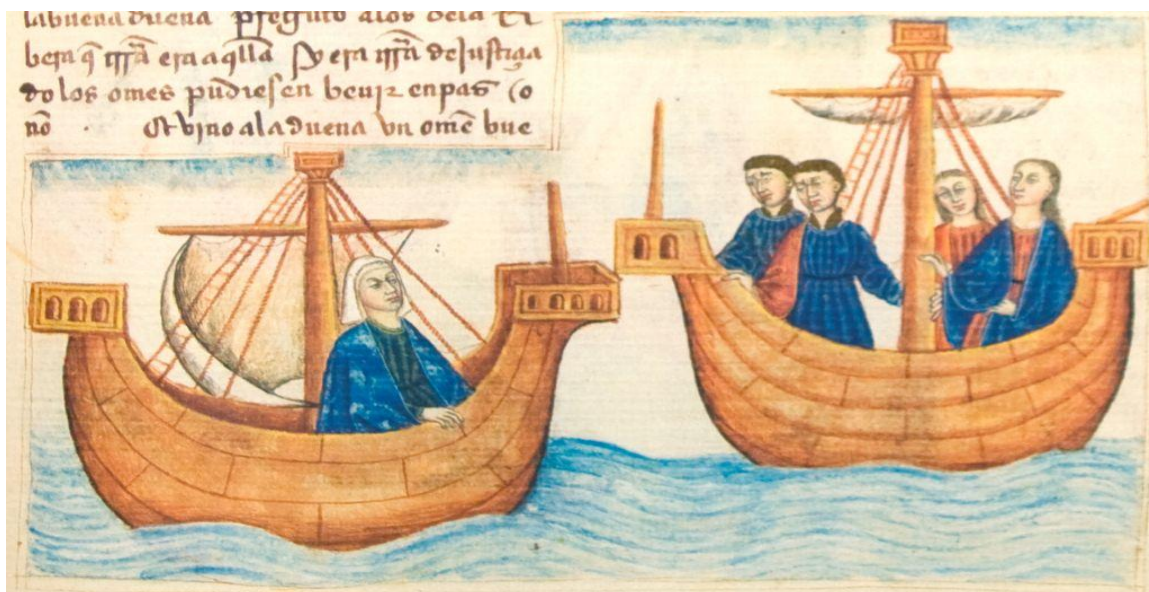 la buena dueña preguto alos dela Ri
bera q̃ trr̃a era aq̃lla Sy era trr̃a de justiçia
do los omes pudiesen beuir en pas o
nõ . Et vino ala dueña vn ome bue